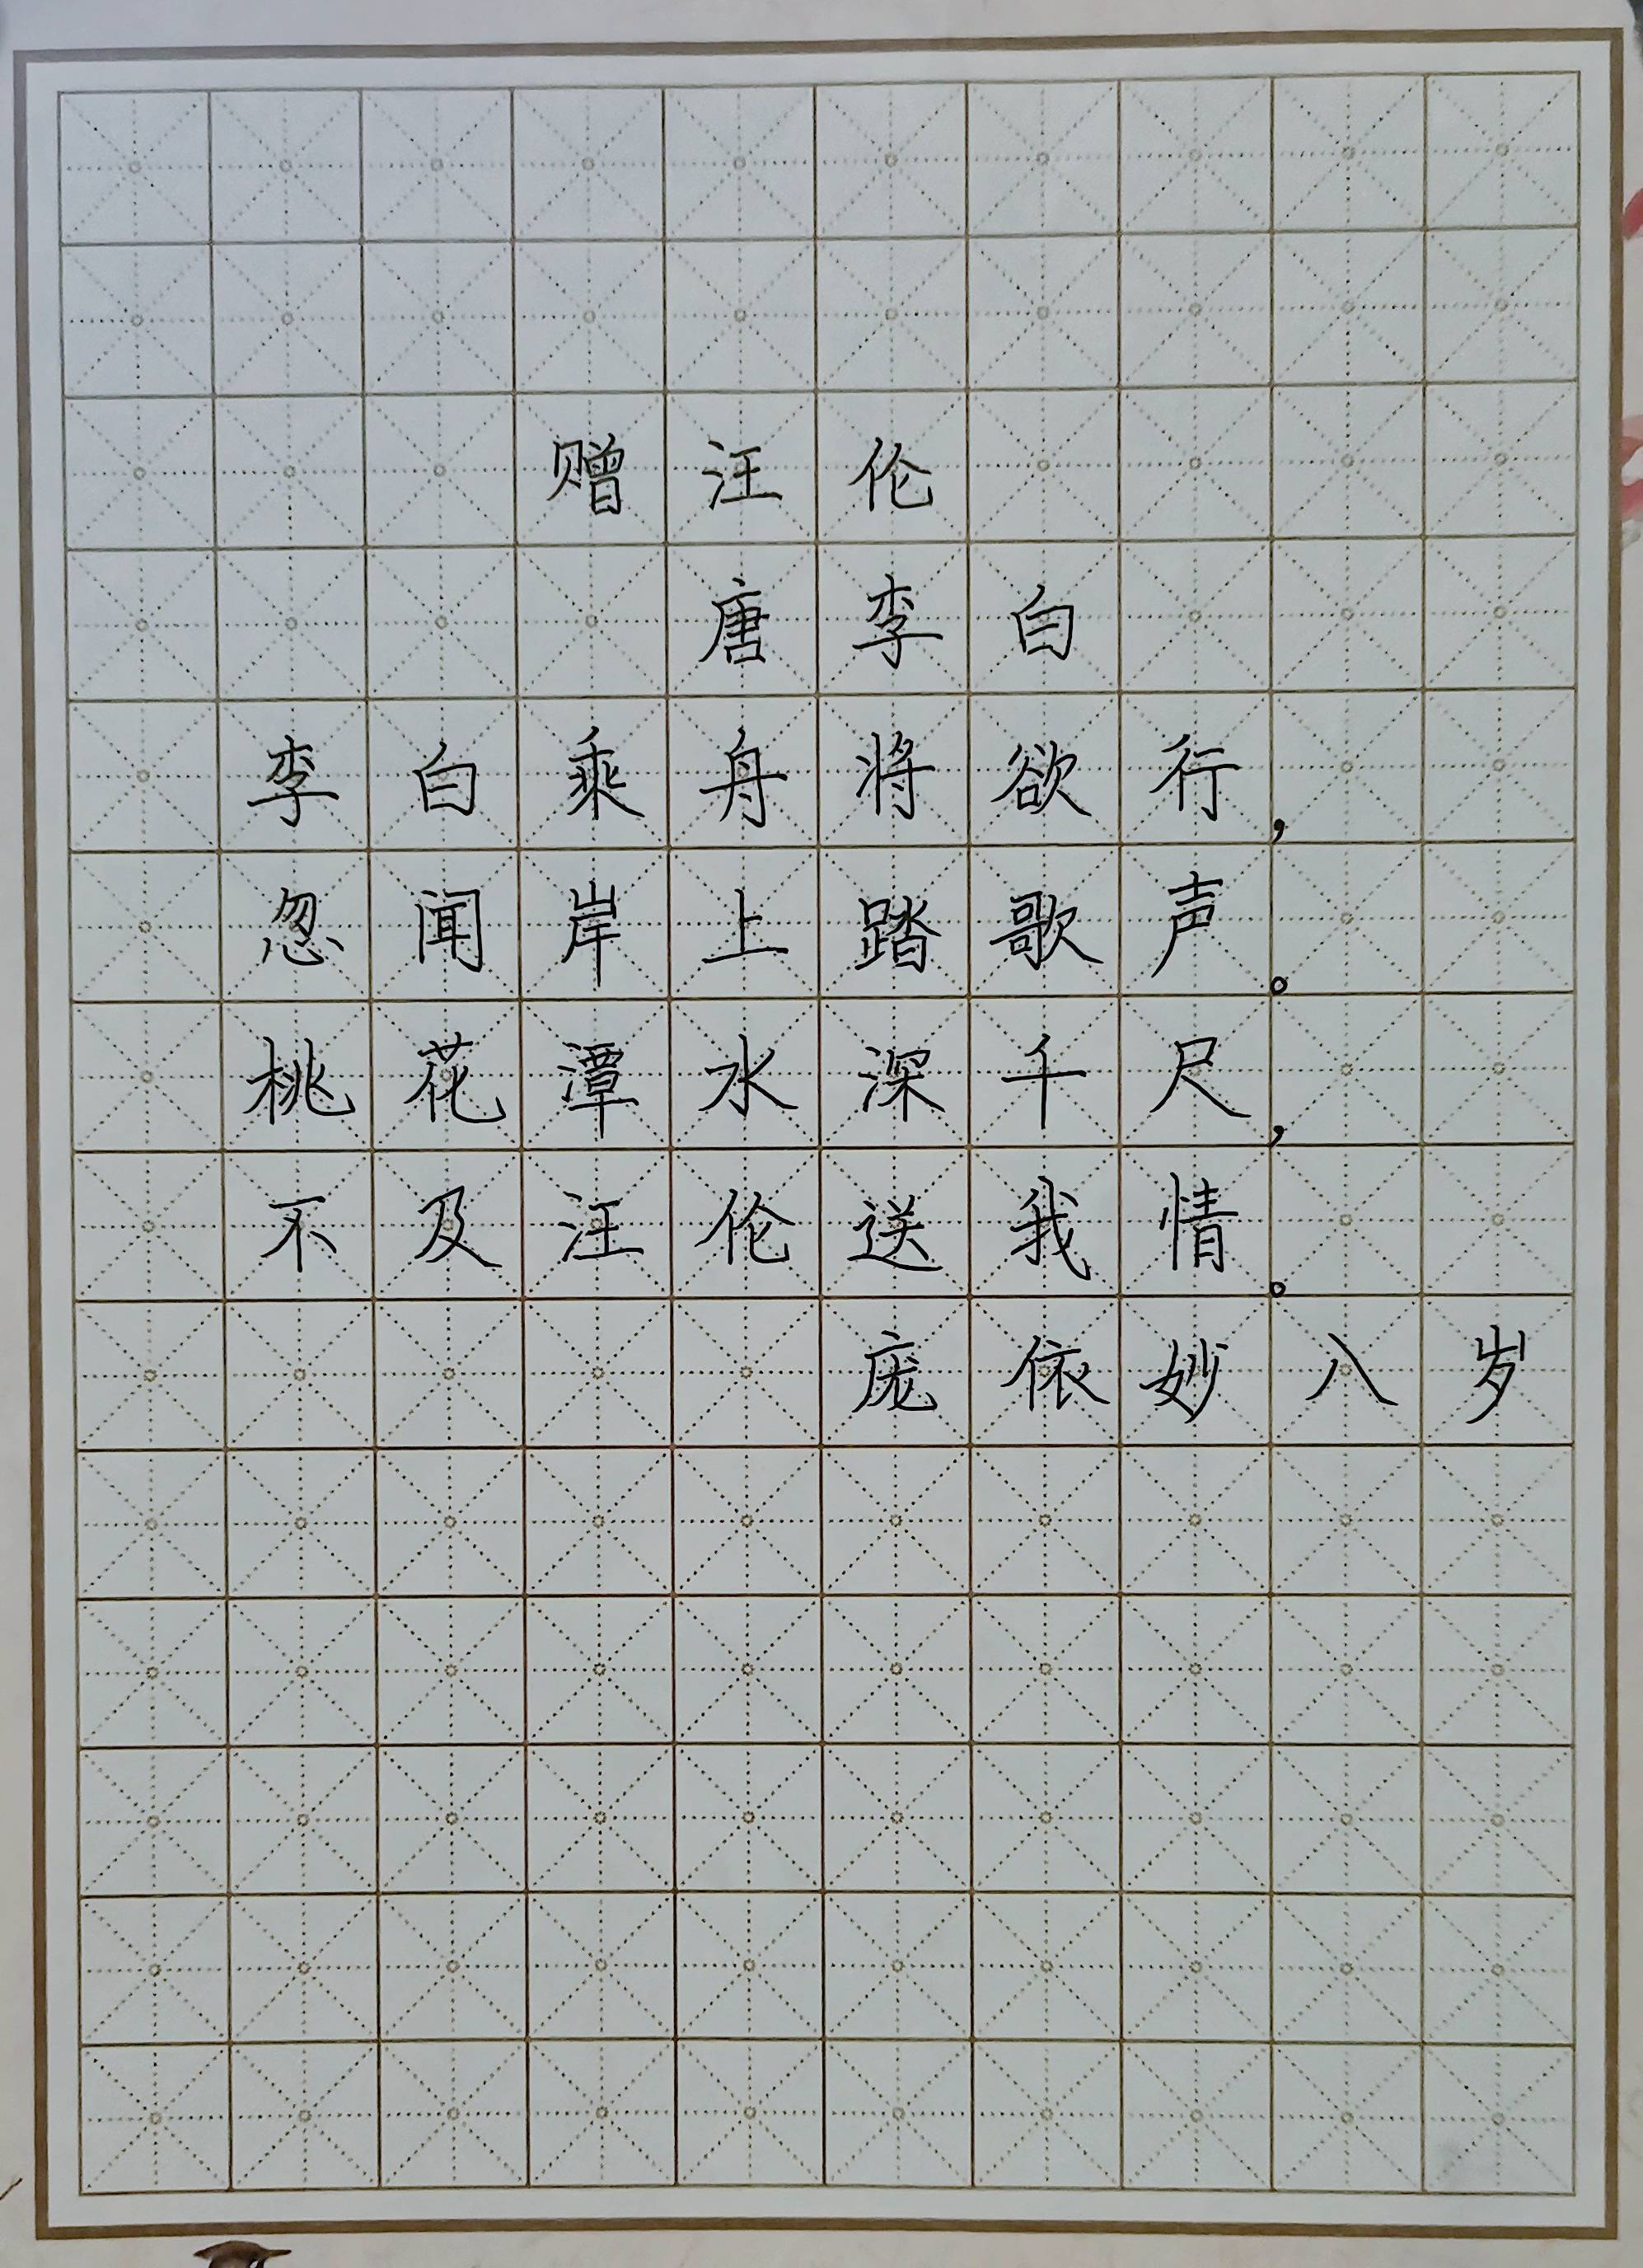 赠汪伦
唐李白
李白乘舟将欲行,
忽闻岸上踏歌声。
桃花潭水深千尺,
不及汪伦送我情。
庞依妙八岁